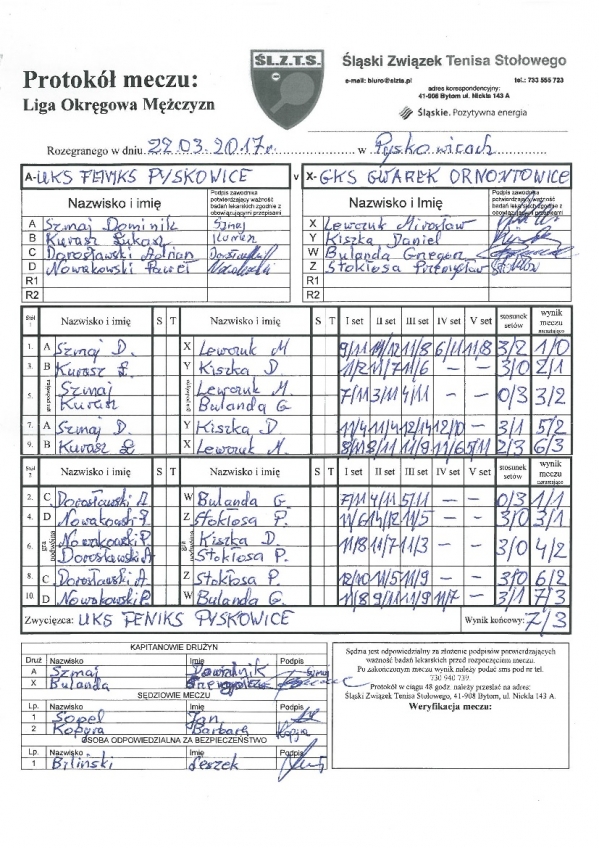 ŚL.Z.T.S.
Śląski Związek Tenisa Stołowego
e-mail: biuro@slzts.pl tel.: 733 555 723
adres korespondencyjny:
41-908 Bytom ul. Nickla 143 A
Śląskie. Pozytywna energia
Protokół meczu:
Liga Okręgowa Mężczyzn
Rozegranego w dniu 22.03.2017r. w Pyskowicach
A-UKS FENIKS PYSKOWICE v X-GKS GWAREK ORNONTOWICE
Nazwisko i imię Podpis zawodnika potwierdzający ważność badań lekarskich zgodnie z obowiązującymi przepisami Nazwisko i Imię Podpis zawodnika potwierdzający ważność badań lekarskich zgodnie z obowiązującymi przepisami
A Szmaj Dominik Szmaj X Lewczuk Mirosław
B Kurasz Łukasz Kurasz Y Kiszka Daniel
C Dorosławski Adrian W Bulanda Grzegorz
D Nowakowski Paweł Z Stokłosa Przemysław
R1 R1
R2 R2
Stół 1 Nazwisko i imię S T Nazwisko i imię S T I set II set III set IV set V set stosunek setów wynik meczu narastająco
1. A Szmaj D. X Lewczuk M 9/11 8/11 6/11 11/8 3/2 1/0
3. B Kurasz Ł. Y Kiszka D. 11/2 11/7 11/6 – – 3/0 2/1
5. gra podwójna Szmaj Lewczuk M. 7/11 3/11 4/11 – – 0/3 3/2
Kurasz Bulanda G.
7. A Szmaj D. Y Kiszka D. 11/4 11/4 12/14 12/10 – 3/1 5/2
9. B Kurasz Ł X Lewczuk M. 11/9 11/6 5/11 2/3 6/3
Stół 2 Nazwisko i imię S T Nazwisko i imię S T I set II set III set IV set V set stosunek setów wynik meczu narastająco
2. C Dorosławski A. W Bulanda G. 7/11 4/11 5/11 – – 0/3 1/1
4. D Nowakowski P. Z Stokłosa P. 11/6 14/12 11/5 – – 3/0 3/1
6. gra podwójna Nowakowski P. Kiszka D. 11/8 11/7 11/3 – – 3/0 4/2
Dorosławski A Stokłosa P.
8. C Dorosławski A. Z Stokłosa P. 12/10 11/5 11/9 – – 3/0 6/2
10. D Nowakowski P. W Bulanda G. 11/8 9/11 11/9 11/7 – 3/1 7/3
Zwycięzca: UKS FENIKS PYSKOWICE Wynik końcowy: 7/3
KAPITANOWIE DRUŻYN
Druż Nazwisko Imię Podpis
A Szmaj Dominik Szmaj
X Bulanda
SĘDZIOWIE MECZU
Lp. Nazwisko Imię Podpis
1 Sopel Jan
2 Kopyra Barbara
OSOBA ODPOWIEDZIALNA ZA BEZPIECZEŃSTWO
Lp. Nazwisko Imię Podpis
1 Biliński Leszek
Sędzia jest odpowiedzialny za złożenie podpisów potwierdzających
ważność badań lekarskich przed rozpoczęciem meczu.
Po zakończonym meczu wynik należy podać sms pod nr tel.
730 940 739.
Protokół w ciągu 48 godz. należy przesłać na adres:
Śląski Związek Tenisa Stołowego, 41-908 Bytom, ul. Nickla 143 A.
Weryfikacja meczu: